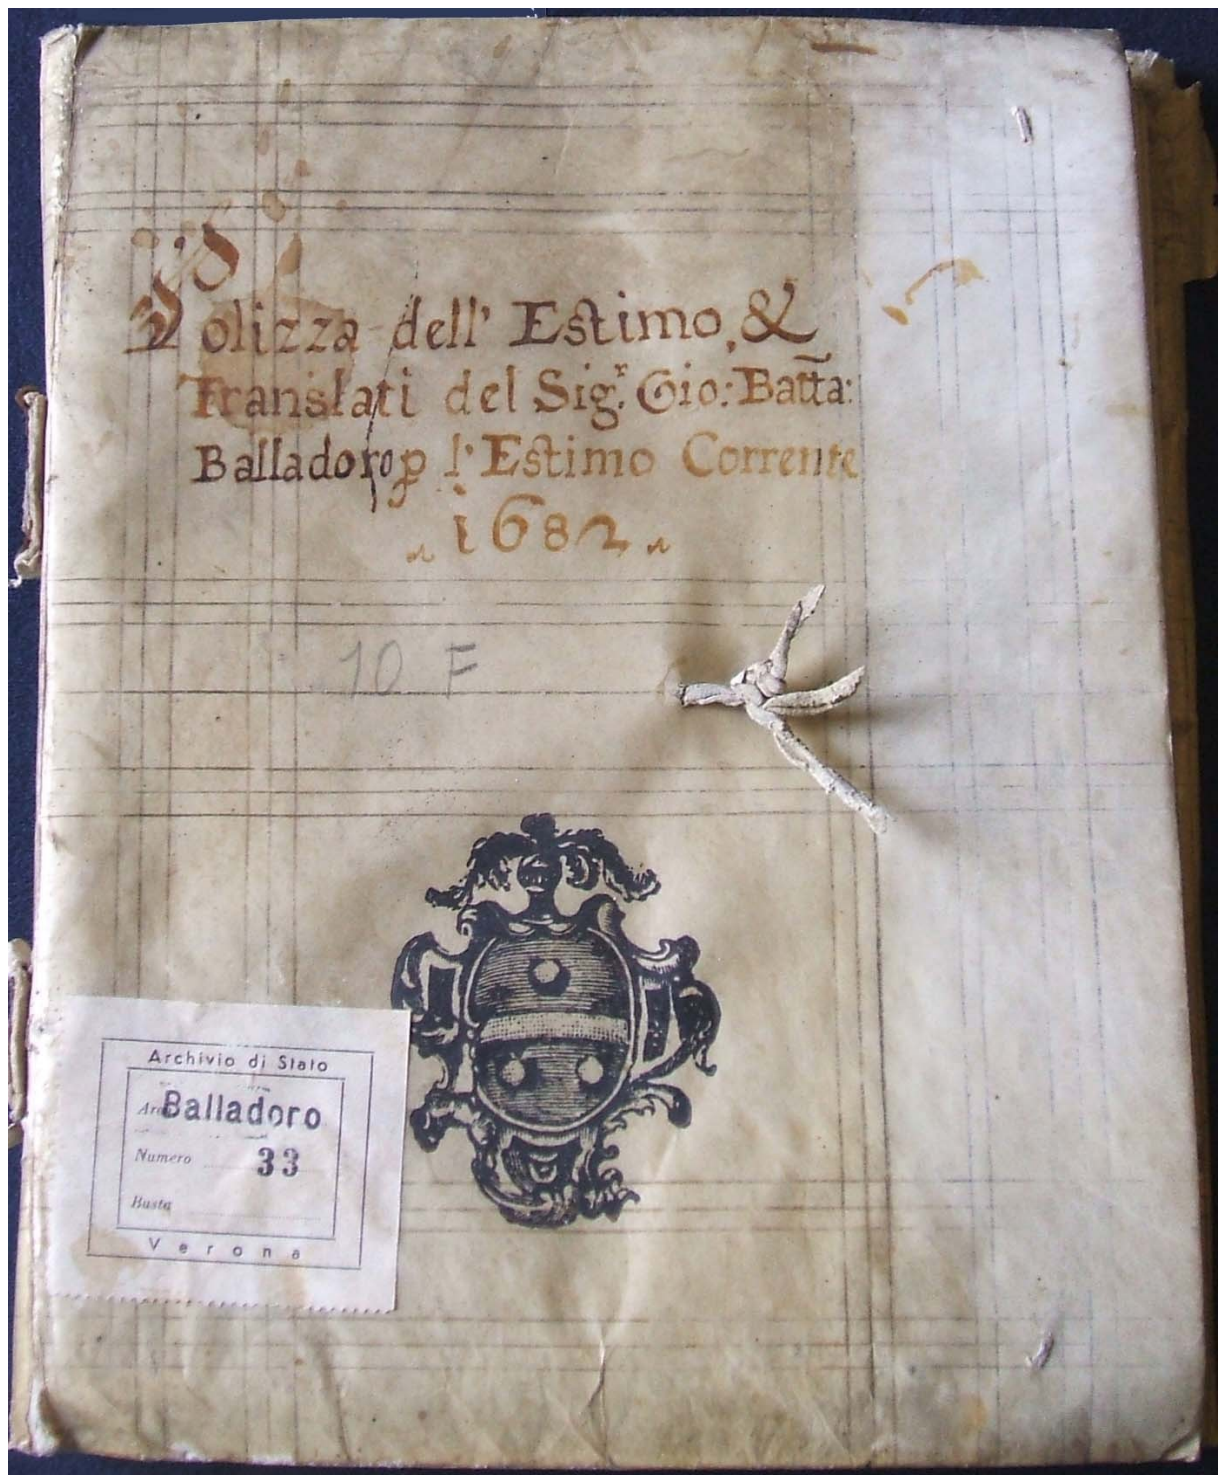 Polizza dell' Estimo, &
Translati del Sig.r Gio: Batta:
Balladoro p l' Estimo Corrente
1682
10 F
Archivio di Stato
Balladoro
Numero 33
Busta
Verona